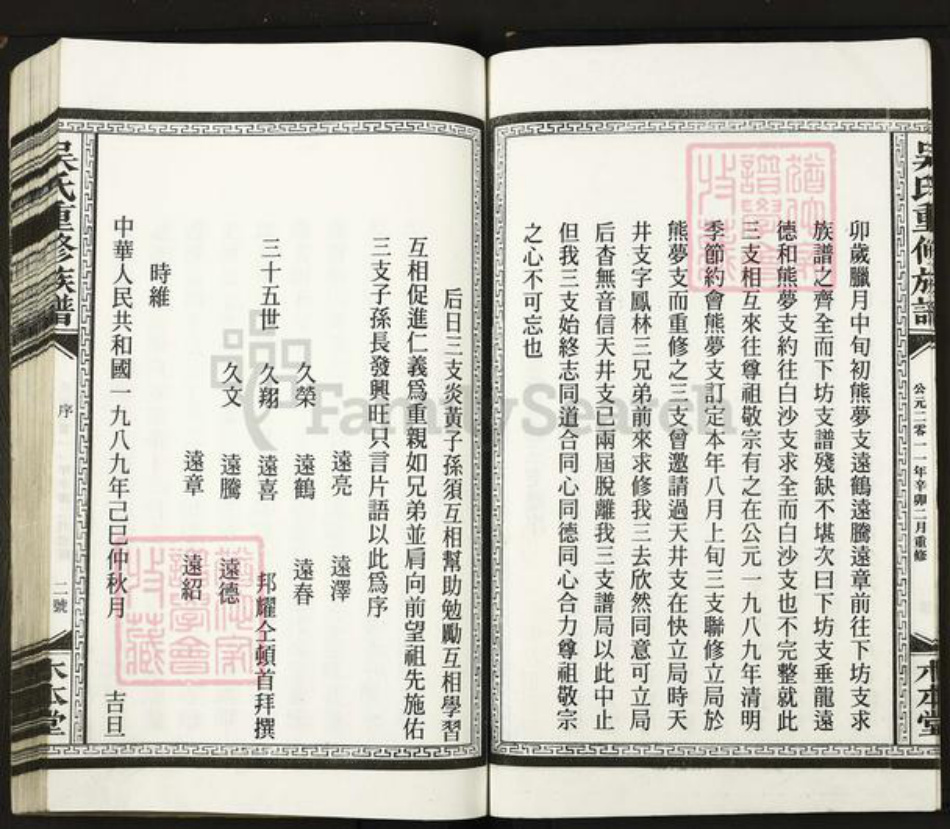 吳氏重修族譜
公元二零一一年辛卯二月重修
木本堂
卯歲臘月中旬初熊夢支遠鶴遠騰遠章前往下坊支求
族譜之齊全而下坊支譜殘缺不堪次日下坊支垂龍遠
德和熊夢支約往白沙支求全而白沙支也不完整就此
三支相互來往尊祖敬宗有之在公元一九八九年清明
季節約會熊夢支訂定本年八月上旬三支聯修立局於
熊夢支而重修之三支曾邀請過天井支在快立局時天
井支字鳳林三兄弟前來求修我三去欣然同意可立局
后杳無音信天井支已兩屆脫離我三支譜局以此中止
但我三支始終志同道合同心同德同心合力尊祖敬宗
之心不可忘也
后日三支炎黃子孫須互相幫助勉勵互相學習
互相促進仁義爲重親如兄弟並肩向前望祖先施佑
三支子孫長發興旺只言片語以此爲序
遠亮 遠澤
久榮 遠鶴 遠春
三十五世 久翔 遠喜 邦耀仝頓首拜撰
久文 遠騰 遠德
遠章 遠紹
時維
中華人民共和國一九八九年己巳仲秋月 吉旦
吳氏重修族譜
序
二號
木本堂
FamilySearch